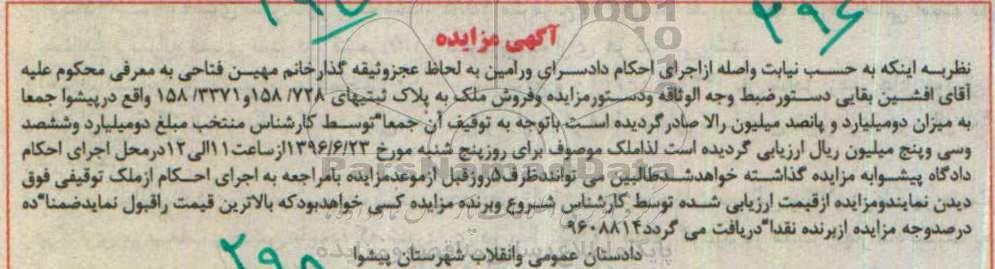 ۲۹۵
۳۹۶
آگهی مزایده
نظربه اینکه به حسب نیابت واصله ازاجرای احکام دادسرای ورامین به لحاظ عجزوثیقه گذارخانم مهین فتاحی به معرفی محکوم علیه
آقای افشین بقایی دستورضبط وجه الوثاقه ودستورمزایده وفروش ملک به پلاک ثبتیهای ۱۵۸/۷۲۸ و۱۵۸/۳۳۷۱ واقع درپیشوا جمعا
به میزان دومیلیارد و پانصد میلیون رالا صادرگردیده است باتوجه به توقیف آن جمعا"توسط کارشناس منتخب مبلغ دومیلیارد وششصد
وسی وپنج میلیون ریال ارزیابی گردیده است لذاملک موصوف برای روزپنج شنبه مورخ ۱۳۹۶/۶/۲۳ازساعت۱۱الی۱۲درمحل اجرای احکام
دادگاه پیشوابه مزایده گذاشته خواهدشدطالبین می توانندظرف۵روزقبل ازموعدمزایده بامراجعه به اجرای احکام ازملک توقیفی فوق
دیدن نمایندومزایده ازقیمت ارزیابی شده توسط کارشناس شروع وبرنده مزایده کسی خواهدبودکه بالاترین قیمت راقبول نمایدضمنا"ده
درصدوجه مزایده ازبرنده نقدا"دریافت می گردد۹۶۰۸۸۱۴
دادستان عمومی وانقلاب شهرستان پیشوا
۲۹۸